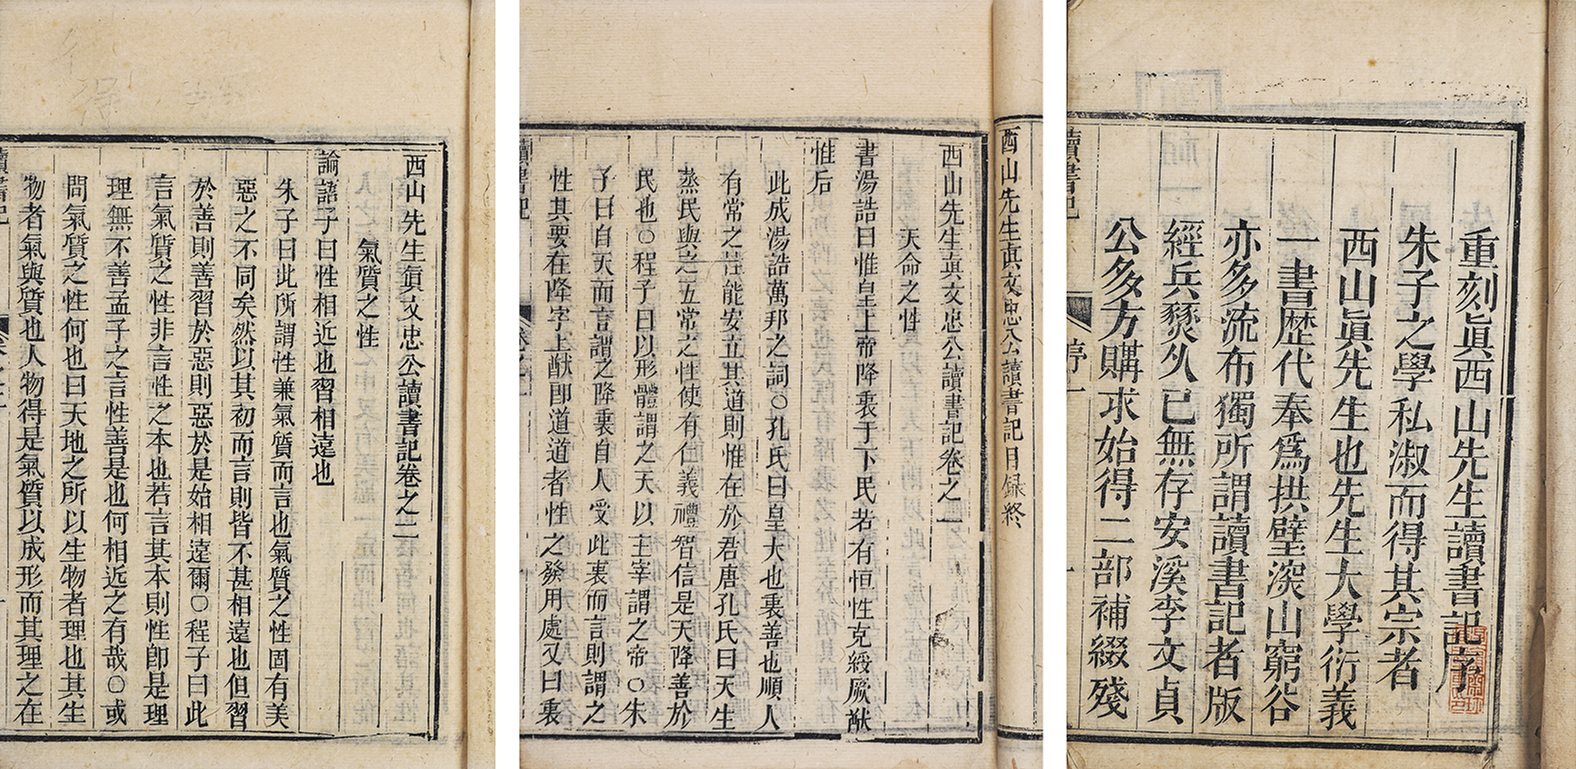 重刻眞西山先生讀書記序
朱子之學私淑而得其宗者
西山眞先生也先生大學衍義
一書歷代奉爲拱璧深山窮谷
亦多流布獨所謂讀書記者版
經兵燹久已無存安溪李文貞
公多方購求始得二部補綴殘
讀書記
序
一
西山先生眞文忠公讀書記目錄終
西山先生眞文忠公讀書記卷之一
天命之性
書湯誥曰惟皇上帝降衷于下民若有恒性克綏厥猷
惟后
此成湯誥萬邦之詞○孔氏曰皇大也衷善也順人
有常之性能安立其道則惟在於君唐孔氏曰天生
蒸民與之五常之性使有仁義禮智信是天降善於
民也○程子曰以形體謂之天以主宰謂之帝○朱
子曰自天而言謂之降衷自人受此衷而言則謂之
性其要在降字上猷卽道道者性之發用處又曰衷
讀書記
西山先生眞文忠公讀書記卷之二
氣質之性
論語子曰性相近也習相遠也
朱子曰此所謂性兼氣質而言也氣質之性固有美
惡之不同矣然以其初而言則皆不甚相遠也但習
於善則善習於惡則惡於是始相遠爾○程子曰此
言氣質之性非言性之本也若言其本則性卽是理
理無不善孟子之言性善是也何相近之有哉○或
問氣質之性何也曰天地之所以生物者理也其生
物者氣與質也人物得是氣質以成形而其理之在
讀書記
卷之二